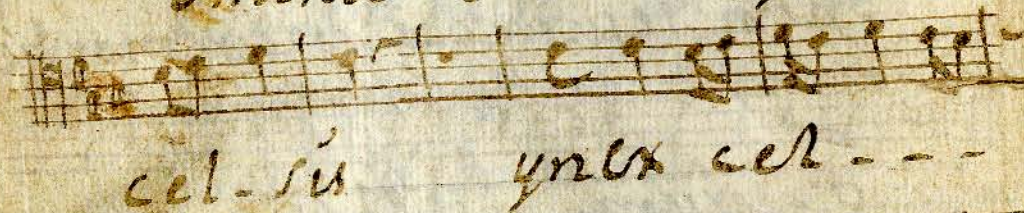 cel - sis ynex cel - - -